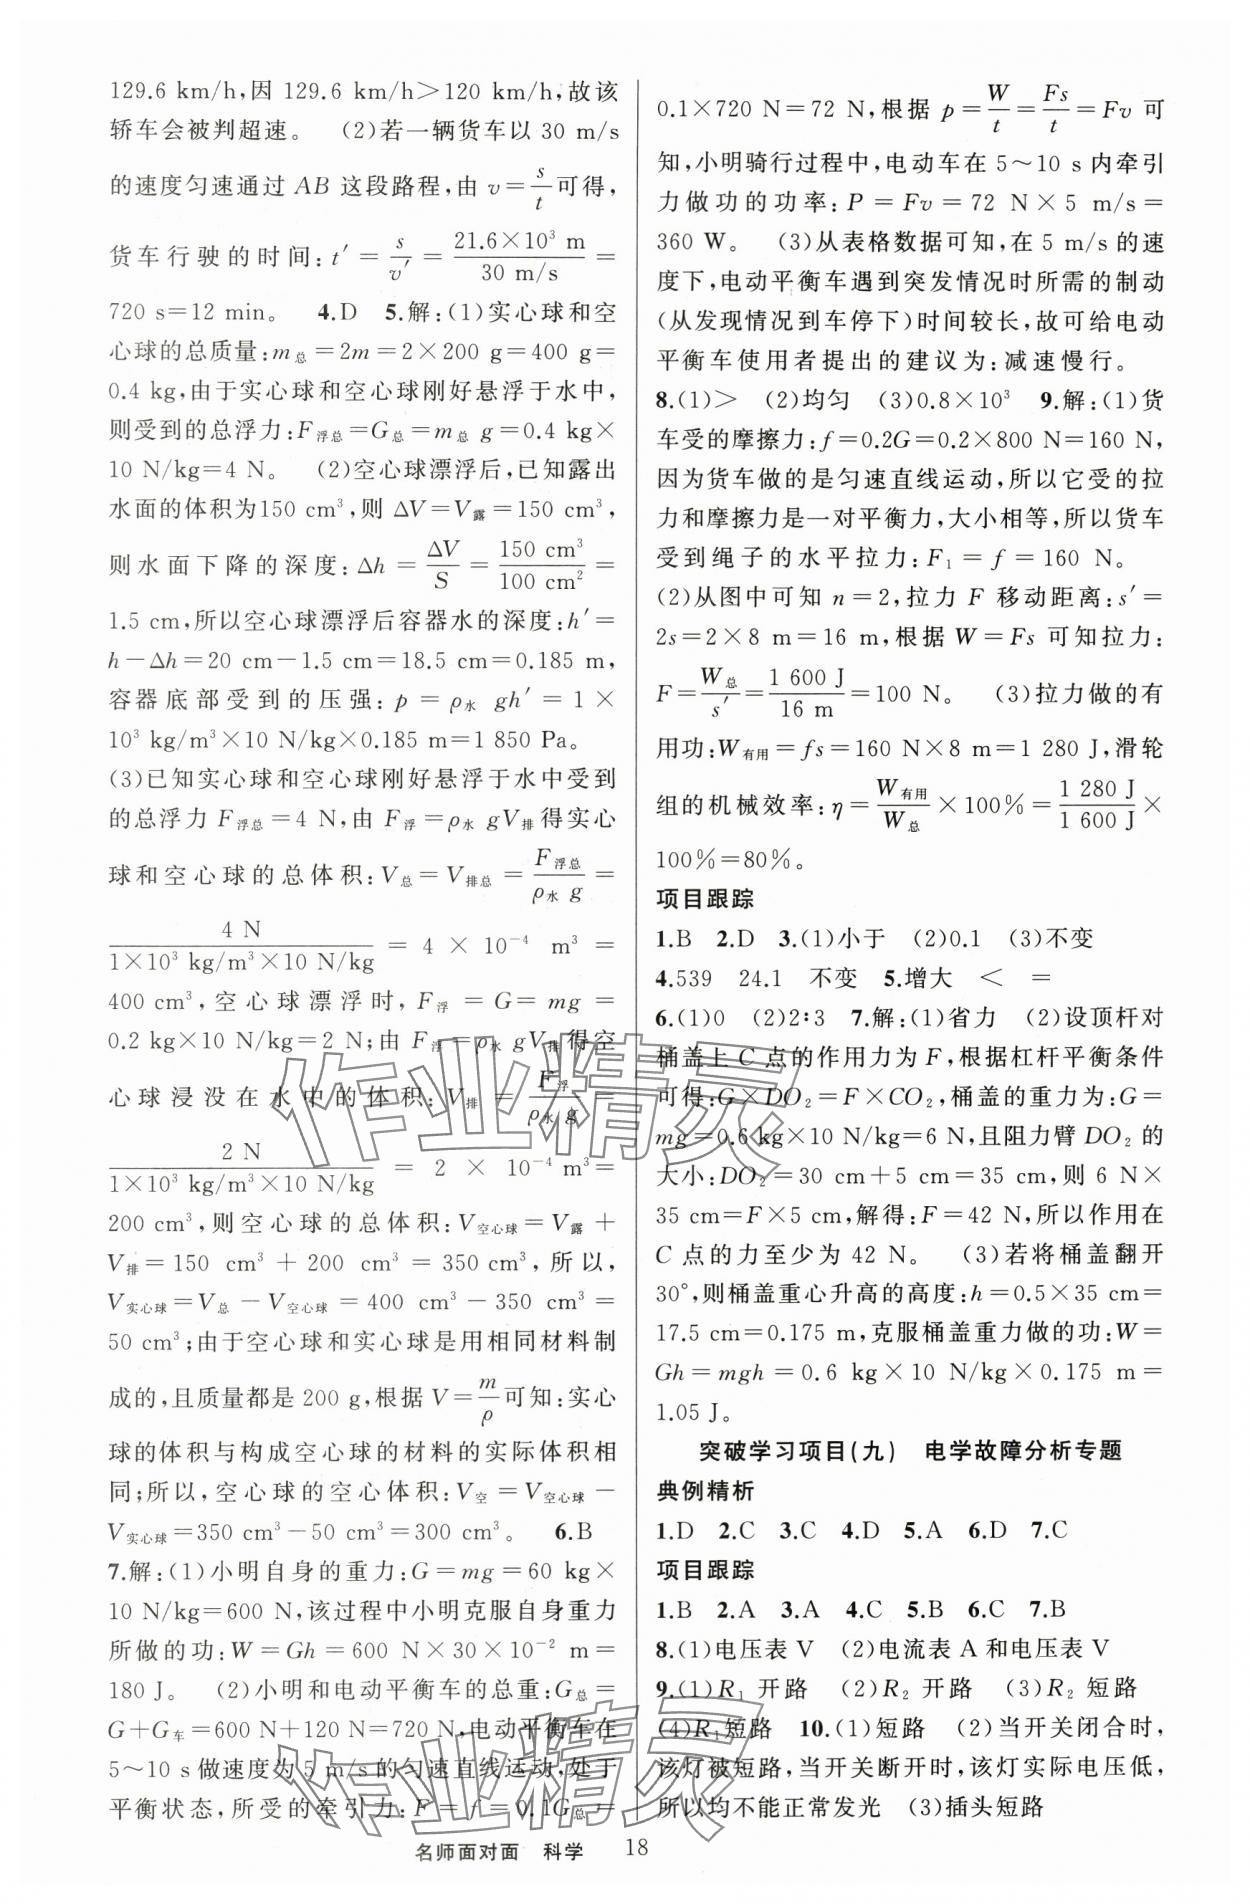 129.6 km/h,因 129.6 km/h>120 km/h,故该
轿车会被判超速。 (2)若一辆货车以 30 m/s
的速度匀速通过 AB 这段路程,由 v=s/t可得,
货车行驶的时间:t′=s/v′=21.6×10³ m/30 m/s=
720 s=12 min。 4.D 5.解:(1)实心球和空
心球的总质量:m总=2m=2×200 g=400 g=
0.4 kg,由于实心球和空心球刚好悬浮于水中,
则受到的总浮力:F浮总=G总=m总 g=0.4 kg×
10 N/kg=4 N。 (2)空心球漂浮后,已知露出
水面的体积为150 cm³,则 ΔV=V露=150 cm³,
则水面下降的深度:Δh=ΔV/S=150 cm³/100 cm²=
1.5 cm,所以空心球漂浮后容器水的深度:h′=
h-Δh=20 cm-1.5 cm=18.5 cm=0.185 m,
容器底部受到的压强:p=ρ水 gh′=1×
10³ kg/m³×10 N/kg×0.185 m=1 850 Pa。
(3)已知实心球和空心球刚好悬浮于水中受到
的总浮力 F浮总=4 N,由 F浮=ρ水 gV排得实心
球和空心球的总体积:V总=V排总=F浮总/ρ水 g=
4 N/1×10³ kg/m³×10 N/kg=4×10⁻⁴ m³=
400 cm³,空心球漂浮时,F浮=G=mg=
0.2 kg×10 N/kg=2 N;由 F浮=ρ水 gV排得空
心球浸没在水中的体积:V排=F浮/ρ水 g=
2 N/1×10³ kg/m³×10 N/kg=2×10⁻⁴ m³=
200 cm³,则空心球的总体积:V空心球=V露+
V排=150 cm³+200 cm³=350 cm³,所以,
V实心球=V总-V空心球=400 cm³-350 cm³=
50 cm³;由于空心球和实心球是用相同材料制
成的,且质量都是 200 g,根据 V=m/ρ可知:实心
球的体积与构成空心球的材料的实际体积相
同;所以,空心球的空心体积:V空=V空心球-
V实心球=350 cm³-50 cm³=300 cm³。 6.B
7.解:(1)小明自身的重力:G=mg=60 kg×
10 N/kg=600 N,该过程中小明克服自身重力
所做的功:W=Gh=600 N×30×10⁻² m=
180 J。 (2)小明和电动平衡车的总重:G总=
G+G车=600 N+120 N=720 N,电动平衡车在
5~10 s 做速度为 5 m/s 的匀速直线运动,处于
平衡状态,所受的牵引力:F=f=0.1G总=
0.1×720 N=72 N,根据 p=W/t=Fs/t=Fv 可
知,小明骑行过程中,电动车在 5~10 s 内牵引
力做功的功率:P=Fv=72 N×5 m/s=
360 W。 (3)从表格数据可知,在 5 m/s 的速
度下,电动平衡车遇到突发情况时所需的制动
(从发现情况到车停下)时间较长,故可给电动
平衡车使用者提出的建议为:减速慢行。
8.(1)> (2)均匀 (3)0.8×10³ 9.解:(1)货
车受的摩擦力:f=0.2G=0.2×800 N=160 N,
因为货车做的是匀速直线运动,所以它受的拉
力和摩擦力是一对平衡力,大小相等,所以货车
受到绳子的水平拉力:F₁=f=160 N。
(2)从图中可知 n=2,拉力 F 移动距离:s′=
2s=2×8 m=16 m,根据 W=Fs 可知拉力:
F=W总/s′=1 600 J/16 m=100 N。 (3)拉力做的有
用功:W有用=fs=160 N×8 m=1 280 J,滑轮
组的机械效率:η=W有用/W总×100%=1 280 J/1 600 J×
100%=80%。
项目跟踪
1.B 2.D 3.(1)小于 (2)0.1 (3)不变
4.539 24.1 不变 5.增大 < =
6.(1)0 (2)2∶3 7.解:(1)省力 (2)设顶杆对
桶盖上 C 点的作用力为 F,根据杠杆平衡条件
可得:G×DO₂=F×CO₂,桶盖的重力为:G=
mg=0.6 kg×10 N/kg=6 N,且阻力臂 DO₂ 的
大小:DO₂=30 cm+5 cm=35 cm,则 6 N×
35 cm=F×5 cm,解得:F=42 N,所以作用在
C 点的力至少为 42 N。 (3)若将桶盖翻开
30°,则桶盖重心升高的高度:h=0.5×35 cm=
17.5 cm=0.175 m,克服桶盖重力做的功:W=
Gh=mgh=0.6 kg×10 N/kg×0.175 m=
1.05 J。
突破学习项目(九) 电学故障分析专题
典例精析
1.D 2.C 3.C 4.D 5.A 6.D 7.C
项目跟踪
1.B 2.A 3.A 4.C 5.B 6.C 7.B
8.(1)电压表 V (2)电流表 A 和电压表 V
9.(1)R₁ 开路 (2)R₂ 开路 (3)R₂ 短路
(4)R₁短路 10.(1)短路 (2)当开关闭合时,
该灯被短路,当开关断开时,该灯实际电压低,
所以均不能正常发光 (3)插头短路
作业精灵
作业精灵
名师面对面 科学 18